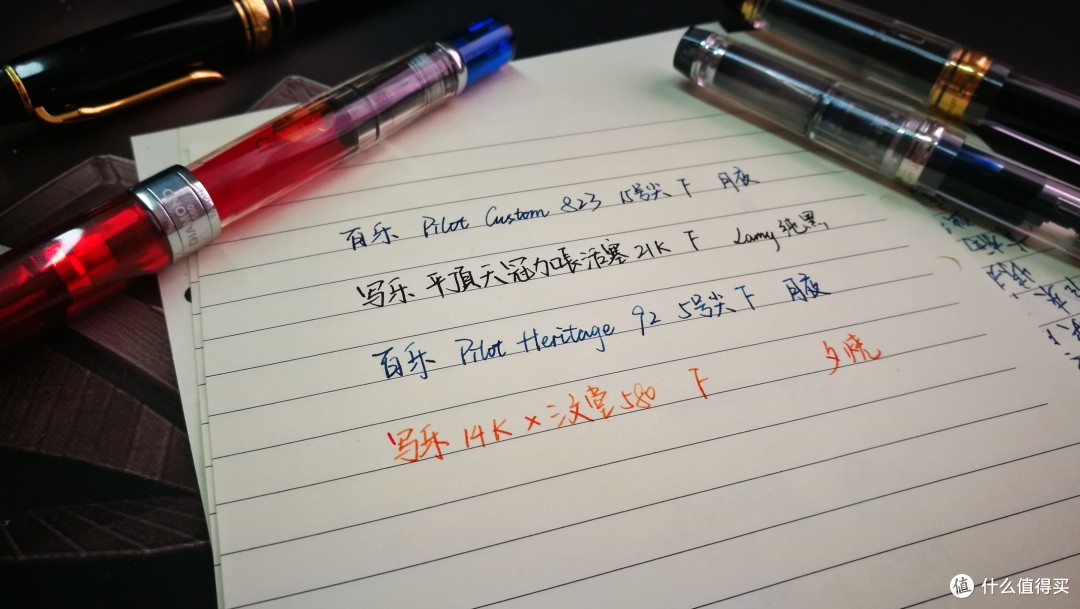 百乐 Pilot Custom 823 15号尖 F 月夜
写乐 平頂天冠加長活塞 21K F Lamy 纯黑
百乐 Pilot Heritage 92 5号尖 F 月夜
写乐 14K × 三文堂 580 F 夕烧
值 什么值得买